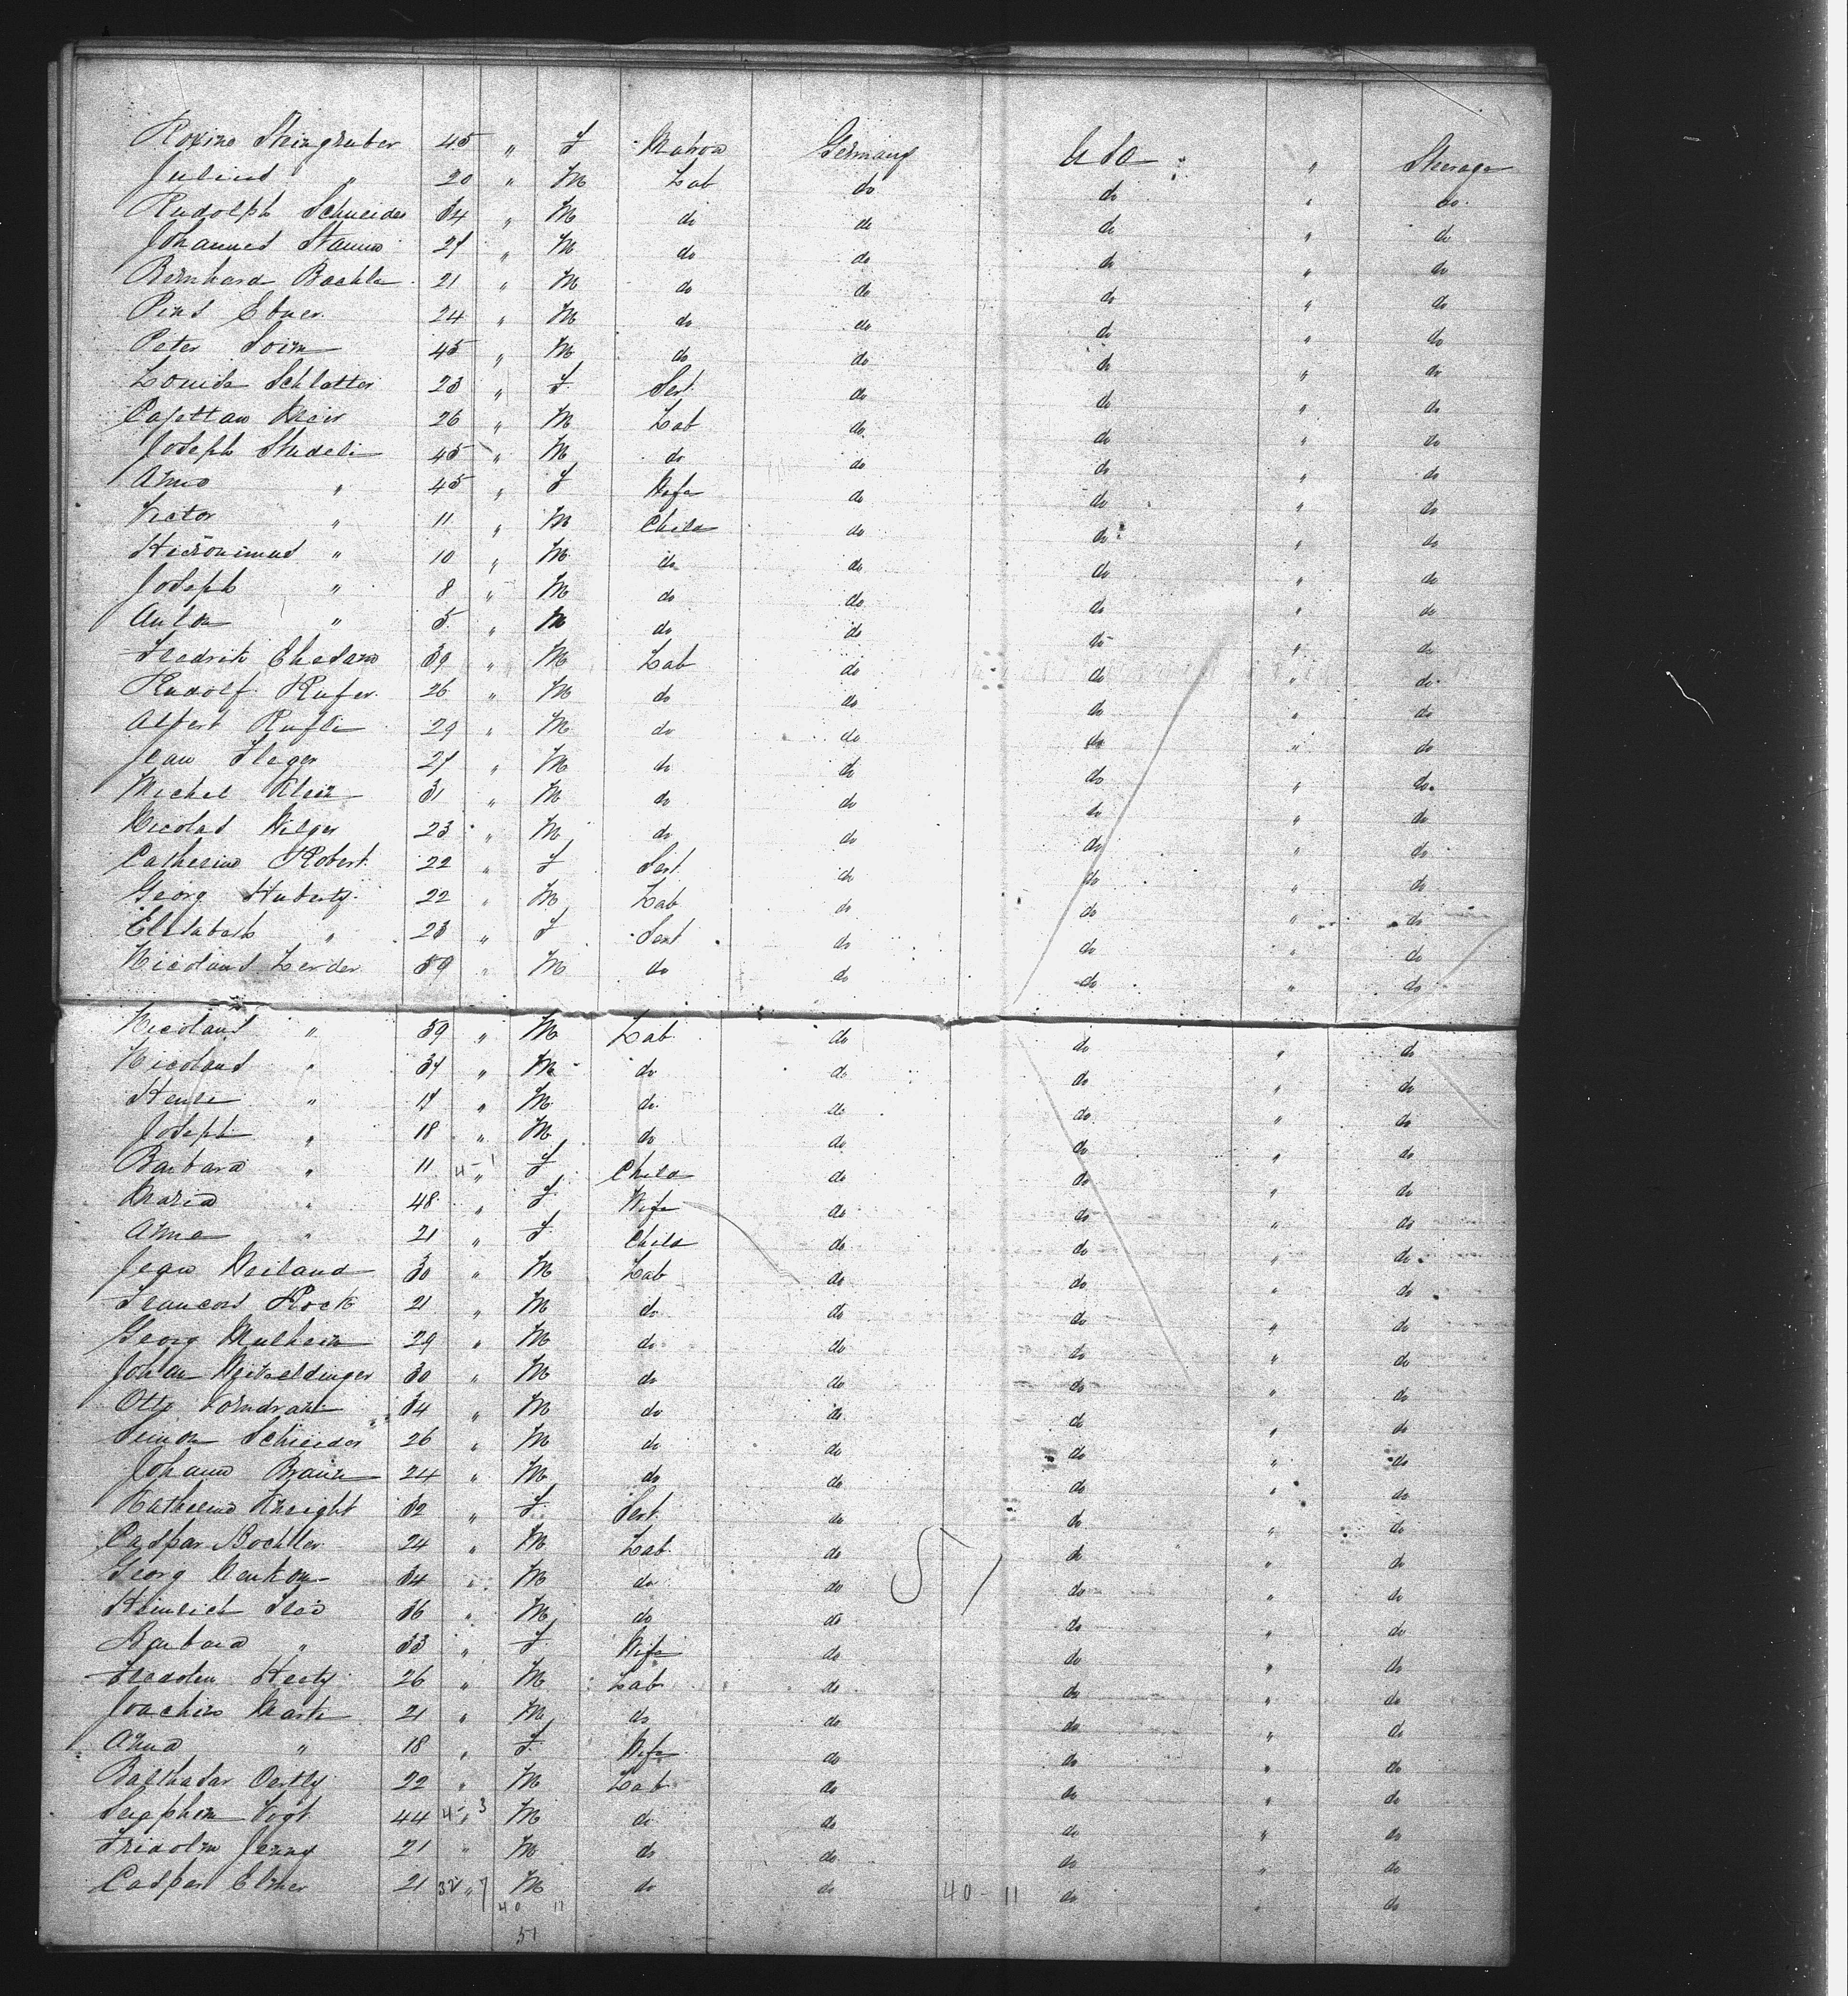 Rosine Steingruber 45 " F Matron Germany USA " Steerage
Julius " 20 " M Lab do do " do
Rudolph Schneider 34 " M do do do " do
Johannes Stamm 27 " M do do do " do
Bernhard Bachle 21 " M do do do " do
Pius Ebner 24 " M do do do " do
Peter 45 " M do do do " do
Louise Schlatter 23 " F Sert do do " do
Cajettan Meir 26 " M Lab do do " do
Joseph Studeli 45 " M do do do " do
Anna " 45 " F Wife do do " do
Victor " 11 " M Child do do " do
Hieronimus " 10 " M do do do " do
Joseph " 8 " M do do do " do
Anton " 5 " M do do do " do
Fredrik 39 " M Lab do do " do
Rudolf Rufer 26 " M do do do " do
Albert Rufli 29 " M do do do " do
Jean Fleger 27 " M do do do " do
Michel Klein 31 " M do do do " do
Nicolas Hilger 23 " M do do do " do
Catherine Robert 22 " F Sert do do " do
Georg Huberty 22 " M Lab do do " do
Elisabeth " 23 " F Sert do do " do
Nicolaus Lerder 59 " M do do do " do
Nicolaus " 59 " M Lab do do " do
Nicolaus " 37 " M do do do " do
Henri " 17 " M do do do " do
Joseph " 18 " M do do do " do
Barbara " 11 4-1 " F Child do do " do
Maria " 48 " F Wife do do " do
Anna " 21 " F Child do do " do
Jean Weiland 30 " M Lab do do " do
Francois Rock 21 " M do do do " do
Georg Mulheim 29 " M do do do " do
Johan 30 " M do do do " do
Otto Vorndran 34 " M do do do " do
Simon Schieider 26 " M do do do " do
Johann Braun 24 " M do do do " do
Katherina Kneight 32 " F Sert do do " do
Caspar Bochtler 24 " M Lab do do " do
Georg Menkon 34 " M do do do " do
Heinrich 36 " M do do do " do
Barbara " 33 " F Wife do do " do
Fridolin Hertz 26 " M Lab do do " do
Joachim Marti 21 " M do do do " do
Anna " 18 " F Wife do do " do
Balthasar Oertly 22 " M Lab do do " do
Seraphim Vogt 44 4-3 " M do do do " do
Fridolin Jenny 21 " M do do do " do
Caspar Elmer 21 32 " 7 M do do 40-11 do " do
40 11
51
51